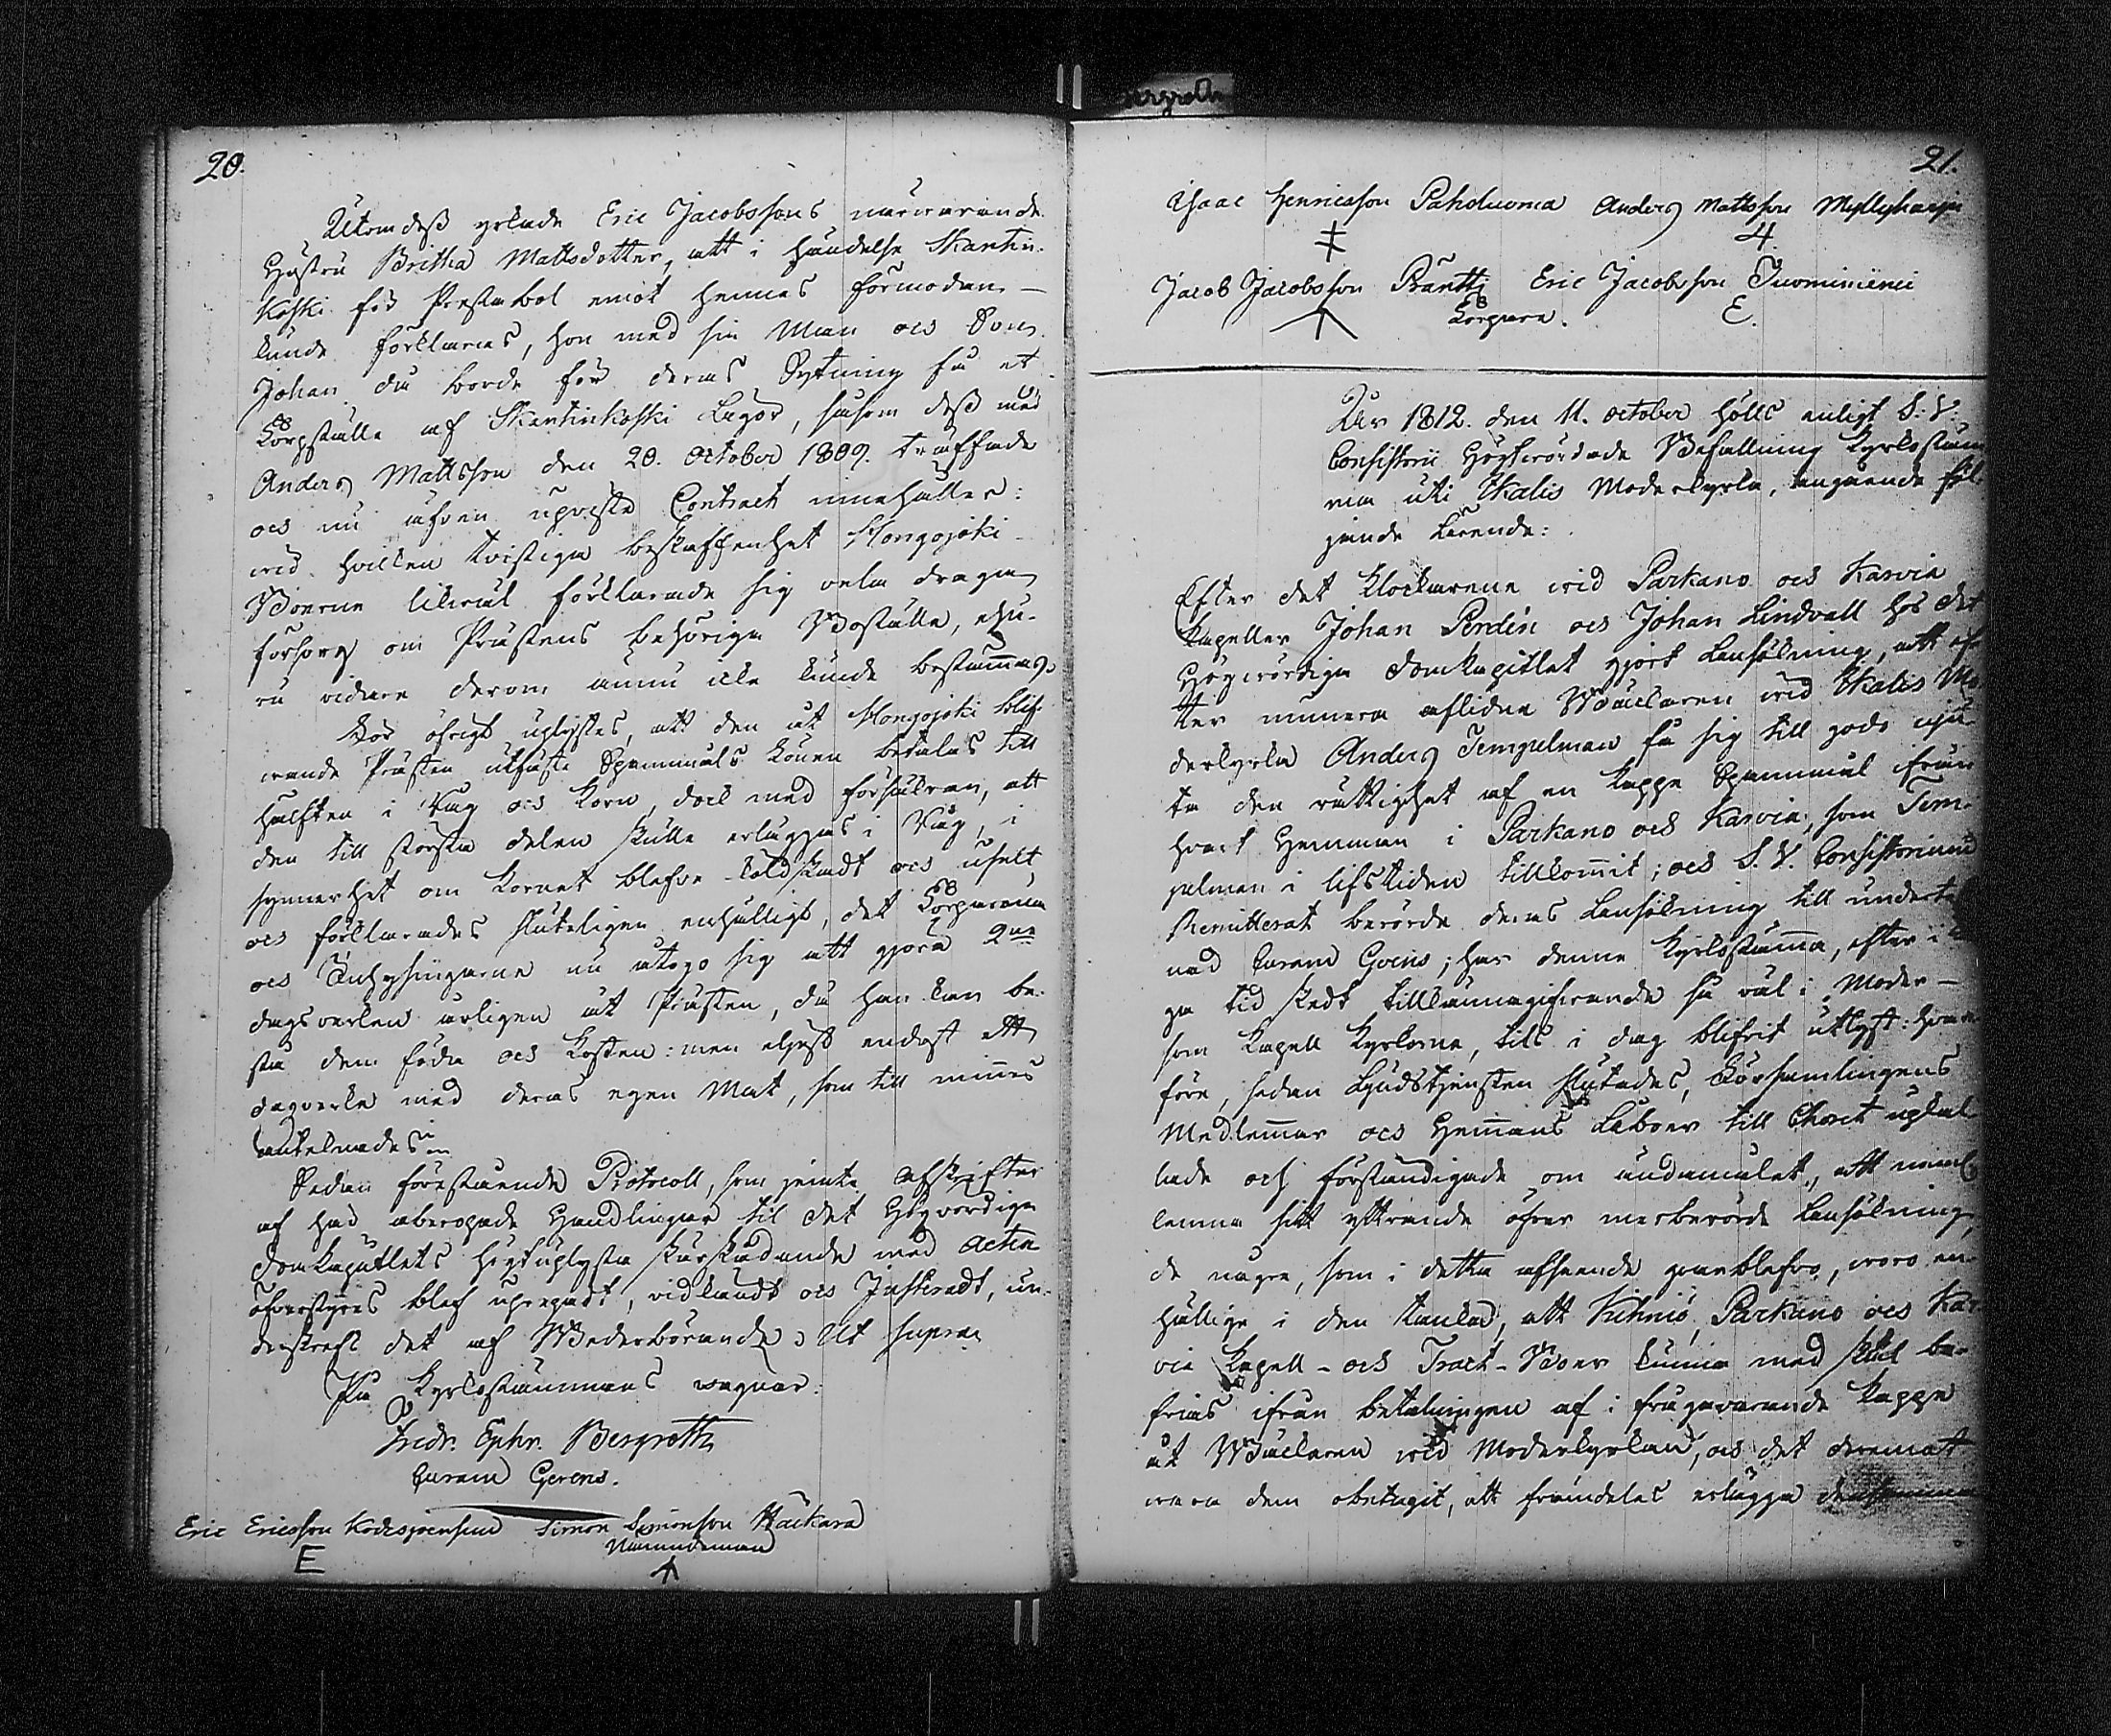 20.
Utomdess yrkade Eric Jacobssons närwarande
Hustru Britha Mattsdotter, att i händelse Skantin-
koski för Prestabol emot hennes förmodan
kunde förklaras, hon med sin Man och Son
Johan då borde för deras Sytning få et
Torpställe af Skantinkoski Lägor, såsom dess med
Anders Mattsson den 20. October 1809. träffade
och nu äfven upviste Contract innehåller:
wid hvilken tvistiga beskaffenhet Hongojoki
Boerne likväl förklarade sig vela draga
försorg om Prästens behöriga Boställe, ehu-
ru vidare derom ännu icke kunde bestämmas.
För öfrigt uplystes, att den åt Hongojoki blif-
wande Prästen utfäste Spannmåls Lönen betalas till
hälften i Råg och Korn, dock med förbehållan, att
den till största delen skulle erläggas i Råg, i
synnerhet om Kornet blefve köldskadt och uselt,
och förklarades sluteligen enhälligt, det Torparena
och Inhysingarne nu åtogo sig att göra 2ne
dagsverken årligen åt Prästen, då han kan be-
stå dem föda och kosten: men eljest endast ett
dagsverke med deras egen Mat, som till minnes
antecknades.
Sedan förestående Protocoll, som jemte afskrifter
af häd åberopade Handlingar till det Högvördiga
Domkapitlets högtuplysta skärskådande med Acten
öfverstyres blef uprepadt, vidkändt och Justeradt, un-
derskrefs det af Wederbörande; Ut supra
På Kyrkostämmans wägnar:
Fredr. Ephr. Bergroth
Curam Gerens.
Eric Ericsson Kodesjoensuu Simon Simonsson Häckära
Nämndeman
E
21.
Isaac Henricsson Paholuoma Anders Mattsson Myllyharju
4.
Jacob Jacobsson Räntti Eric Jacobsson Tuominiemi
Torpare. E.
År 1812. den 11. October hölls enligt S. V.
Consistorii Högtwördade Befallning Kyrkostäm
ma uti Ikalis Moderkyrka, angående föl-
jande ärende:
Efter det Klockarena wid Parkano och Karvia
Capeller Johan Perdén och Johan Lindvall hos det
Högwördiga Domkapitlet gjort Ansökning, att ef-
ter numera aflidne Klåckaren wid Ikalis Mo-
derkyrka Anders Tempelman få sig till godo nju-
ta den rättighet af en kappe Spannmål ifrån
hvart Hemman i Parkano och Karvia, som Tem-
pelman i lifstiden tillkommit; och S. V. Consistorium
Remitterat berörde deras Ansökning till underte
nad Curam Gerens; har denne Kyrkostämma, efter i
ga tid skedt tillkännagifwande så wäl i Moder-
som Kapell Kyrkorna, tils i dag blifvit utlyst: hvar
före, sedan Gudstjensten slutades, Församlingens
Medlemmar och Hemmans Åboer till Choret uplal-
lade och förständigade om ändamålet, att neml
lemna sitt yttrande öfver merberörde Ansökning,
de någre, som i detta afseende qvarblefvo, woro en-
hällige i den tanke, att Kihniö, Parkano och Kar-
via Kapell- och Tract-Boer kunna med skäl be-
frias ifrån betalningen af i frågavarande kappe
åt Klåckaren wid Moderkyrkan, och det deremot
wara dem obetagit, att framdeles erlägga densamma